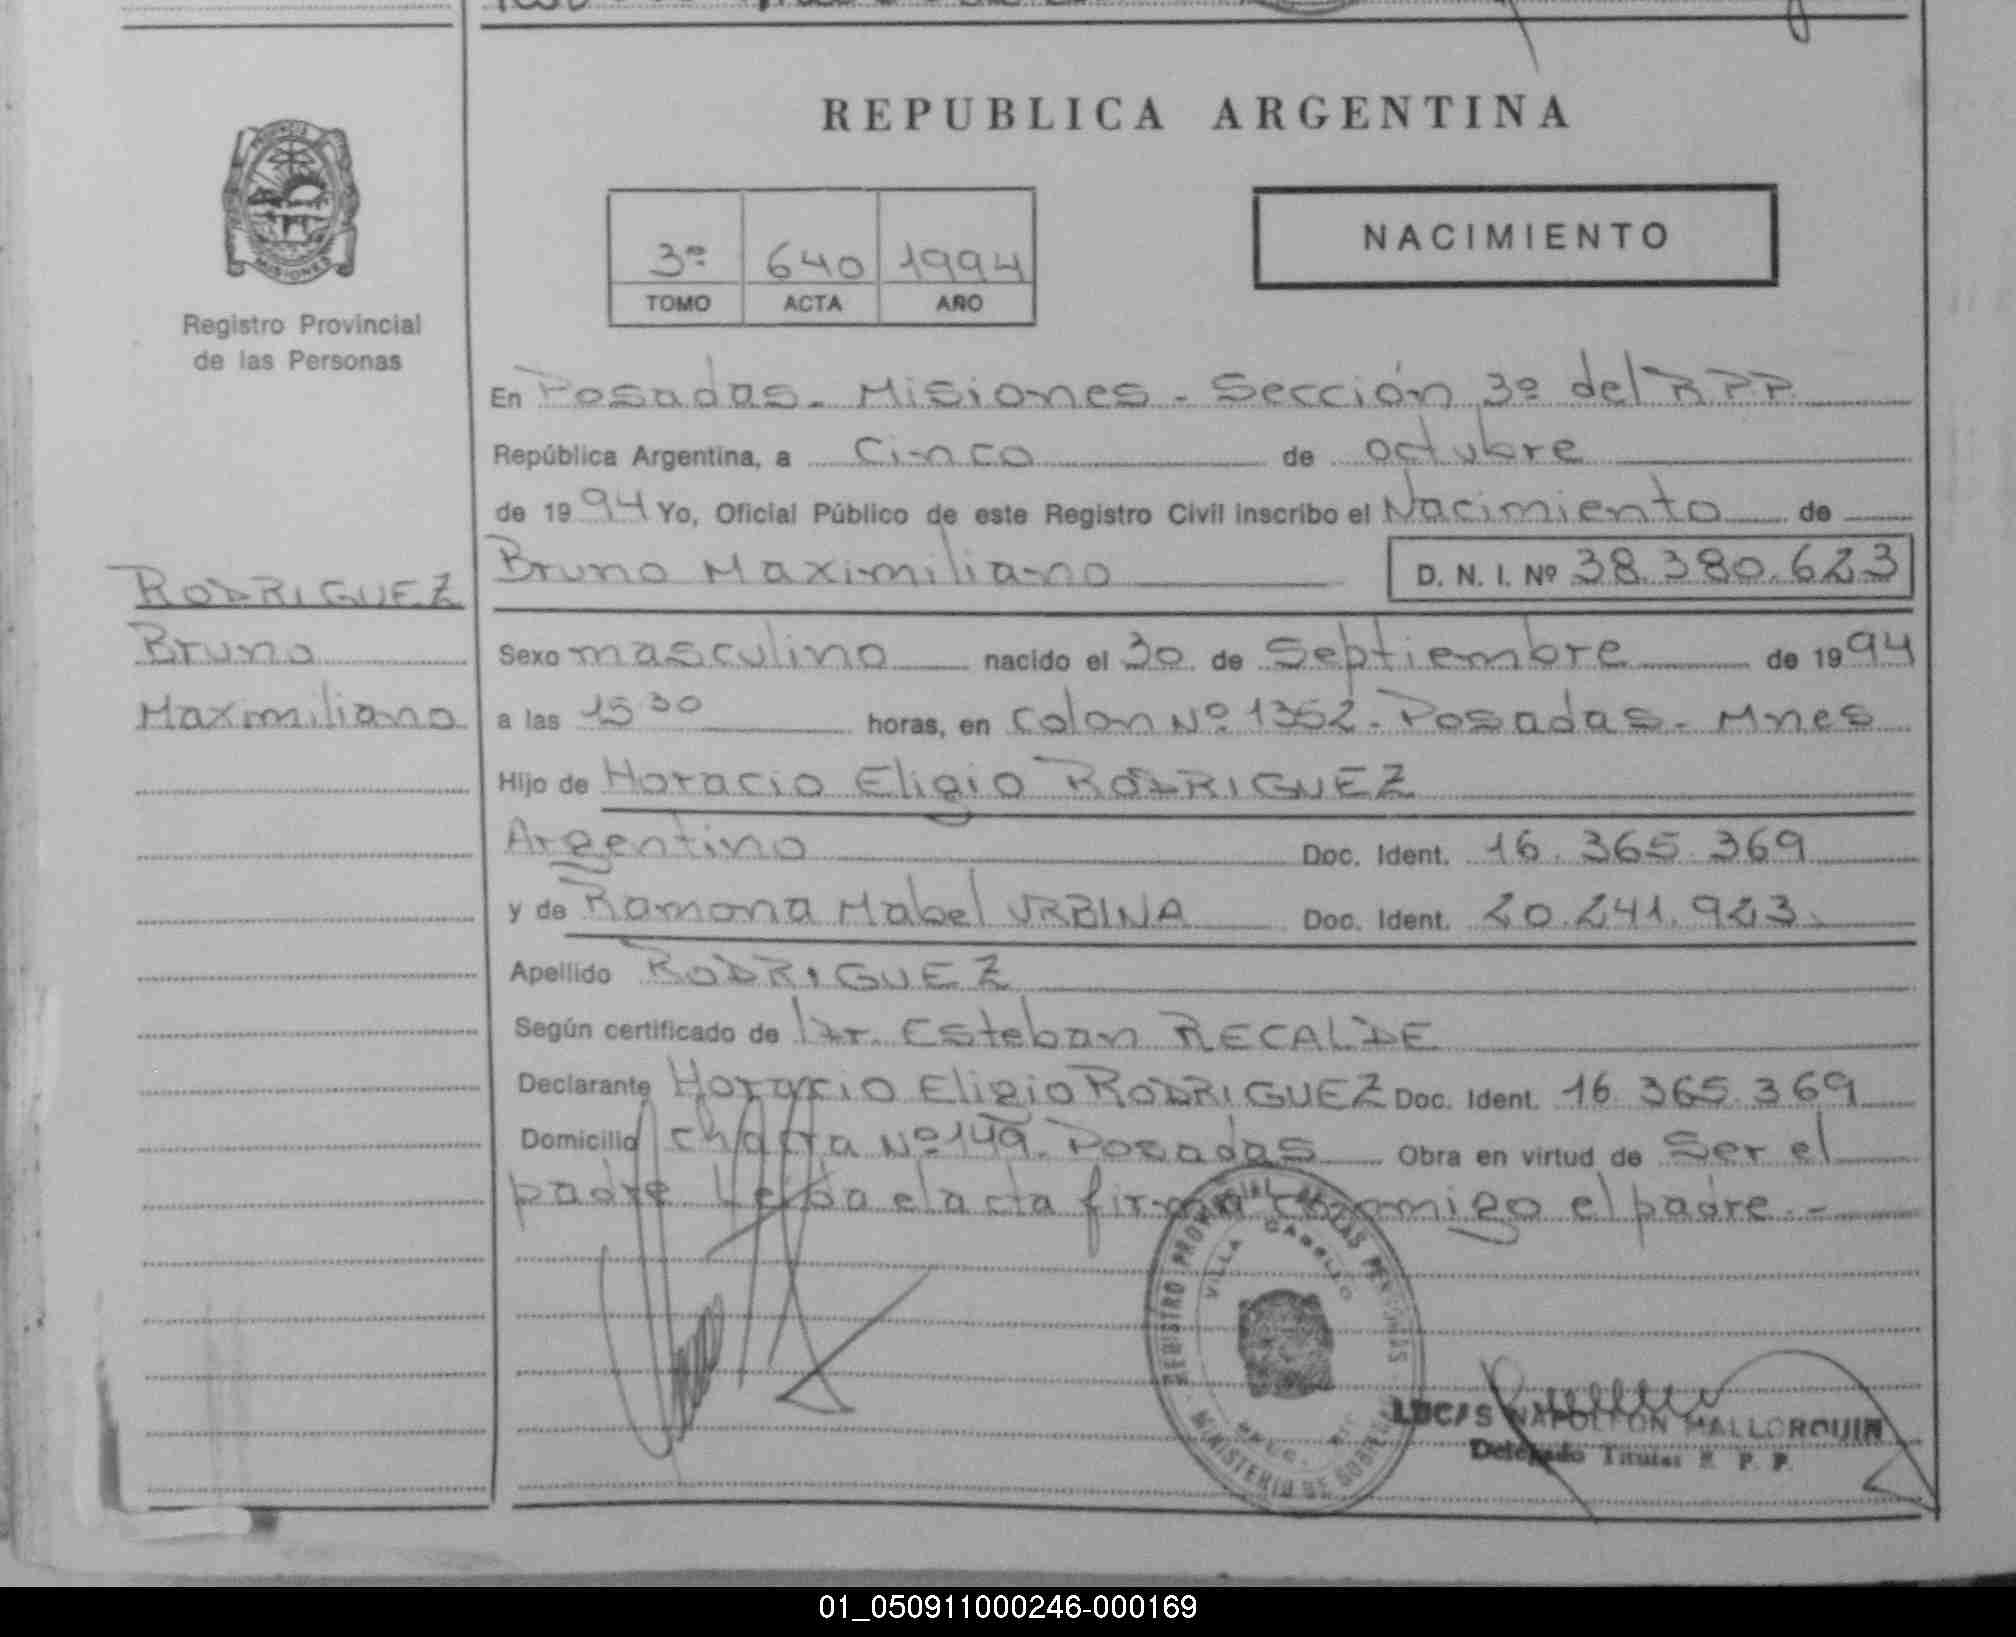 REPUBLICA ARGENTINA
PROVINCIA
MISIONES
Registro Provincial
de las Personas
3º 640 1994
TOMO ACTA AÑO
NACIMIENTO
En Posadas - Misiones - Sección 3º del R.P.P.
República Argentina, a Cinco de octubre
de 1994 Yo, Oficial Público de este Registro Civil inscribo el Nacimiento de
Bruno Maximiliano D. N. I. Nº 38.380.623
RODRIGUEZ
Bruno
Maximiliano
Sexo masculino nacido el 30 de Septiembre de 1994
a las 15 30 horas, en Colon Nº 1352 - Posadas - Mnes
Hijo de Horacio Eligio RODRIGUEZ
Argentino Doc. Ident. 16.365.369
y de Ramona Mabel URBINA Doc. Ident. 20.241.923.
Apellido RODRIGUEZ
Según certificado de Dr. Esteban RECALDE
Declarante Horacio Eligio RODRIGUEZ Doc. Ident. 16.365.369
Domicilio chacra Nº 149. Posadas Obra en virtud de Ser el
padre. Leída el acta firma conmigo el padre.-
REGISTRO PROVINCIAL DE LAS PERSONAS
VILLA CABELLO
MINISTERIO DE GOBIERNO
LUCAS NAPOLEON MALLORQUIN
Delegado Titular R. P. P.
01_050911000246-000169